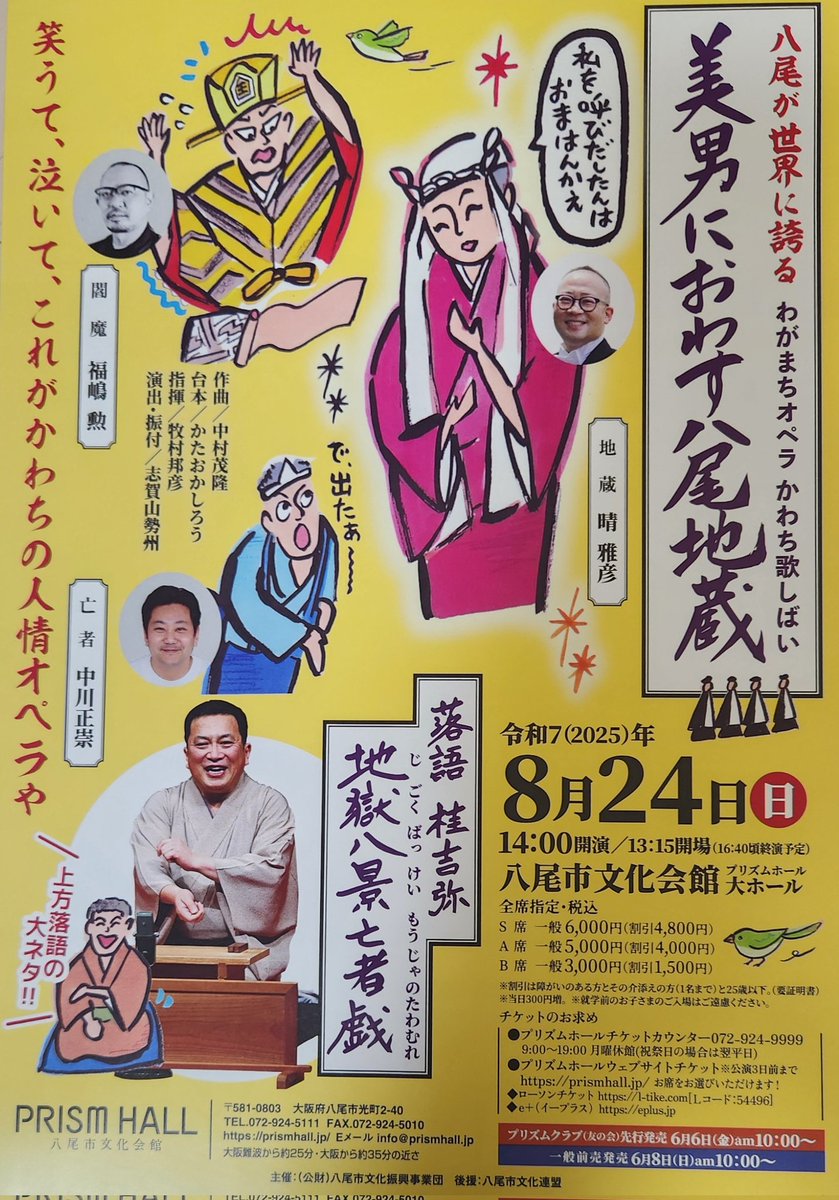 八尾が世界に誇る
わがまちオペラ かわち歌しばい
美男におわす八尾地蔵
私を呼びだしたんは
おまはんかえ
笑うて、泣いて、これがかわちの人情オペラや
閻魔 福嶋 勲
地蔵 晴 雅彦
作曲／中村茂隆
台本／かたおかしろう
指揮／牧村邦彦
演出・振付／志賀山勢州
で、出たぁ〜
亡者 中川正崇
落語 桂吉弥
地獄八景亡者戯
じごくばっけい もうじゃのたわむれ
上方落語の
大ネタ!!
令和7(2025)年
8月24日日
14:00開演／13:15開場(16:40頃終演予定)
八尾市文化会館 プリズムホール
大ホール
全席指定・税込
S 席 一般 6,000円(割引4,800円)
A 席 一般 5,000円(割引4,000円)
B 席 一般 3,000円(割引1,500円)
※割引は障がいのある方とその介添えの方(1名まで)と25歳以下。(要証明書)
※当日300円増。※就学前のお子さまのご入場はご遠慮ください。
チケットのお求め
●プリズムホールチケットカウンター072-924-9999
9:00〜19:00 月曜休館(祝祭日の場合は翌平日)
●プリズムホールウェブサイトチケット※公演3日前まで
https://prismhall.jp/ お席をお選びいただけます!
◆ローソンチケット https://l-tike.com[Lコード:54496]
◆e+(イープラス) https://eplus.jp
プリズムクラブ(友の会)先行発売 6月6日(金)am10:00〜
一般前売発売 6月8日(日)am10:00〜
PRISM HALL
八尾市文化会館
〒581-0803 大阪府八尾市光町2-40
TEL.072-924-5111 FAX.072-924-5010
https://prismhall.jp/ Eメール info@prismhall.jp
大阪難波から約25分・大阪から約35分の近さ
主催:(公財)八尾市文化振興事業団 後援:八尾市文化連盟
PRISM HALL
TEL.072-924-5111 FAX.072-924-5010